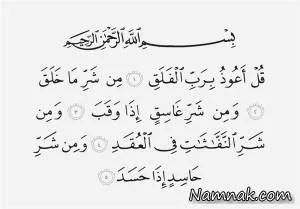 بِسْمِ ٱللَّهِ ٱلرَّحْمَٰنِ ٱلرَّحِيمِ
قُلْ أَعُوذُ بِرَبِّ ٱلْفَلَقِ ١ مِن شَرِّ مَا خَلَقَ
٢ وَمِن شَرِّ غَاسِقٍ إِذَا وَقَبَ ٣ وَمِن
شَرِّ ٱلنَّفَّٰثَٰتِ فِى ٱلْعُقَدِ ٤ وَمِن شَرِّ
حَاسِدٍ إِذَا حَسَدَ ٥
Namnak.com